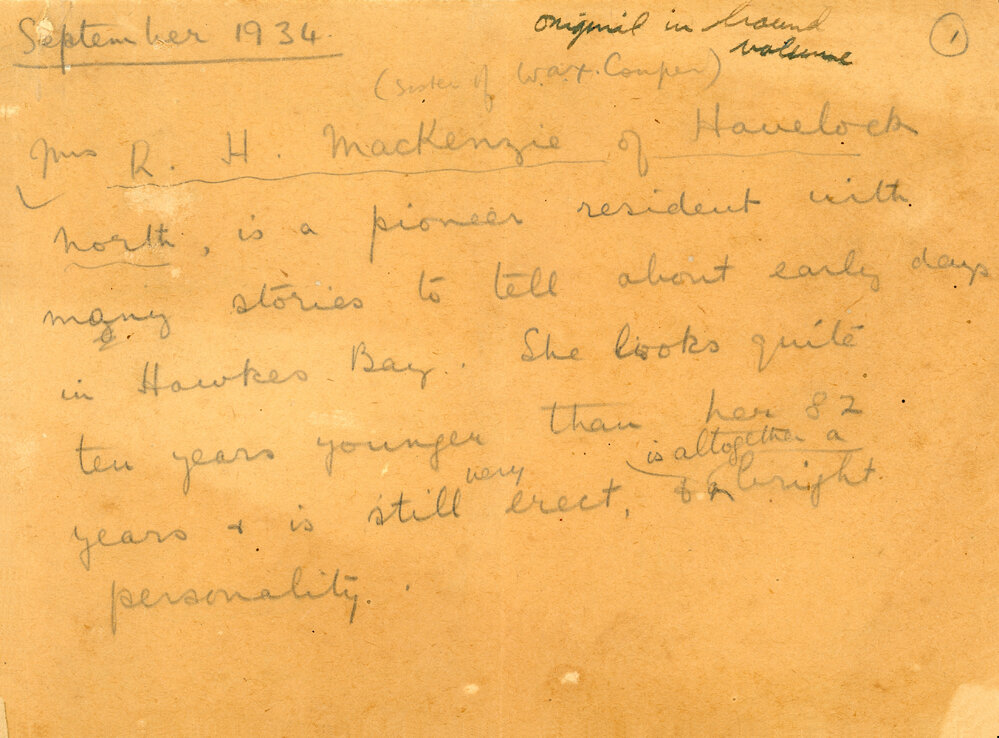 September 1934
original in bound
volume
1
(Sister of Wax. Couper)
Mrs R. H. MacKenzie of Havelock
North, is a pioneer resident with
many stories to tell about early days
in Hawkes Bay. She looks quite
ten years younger than her 82
is altogether a
years & is still very erect, & bright
personality.